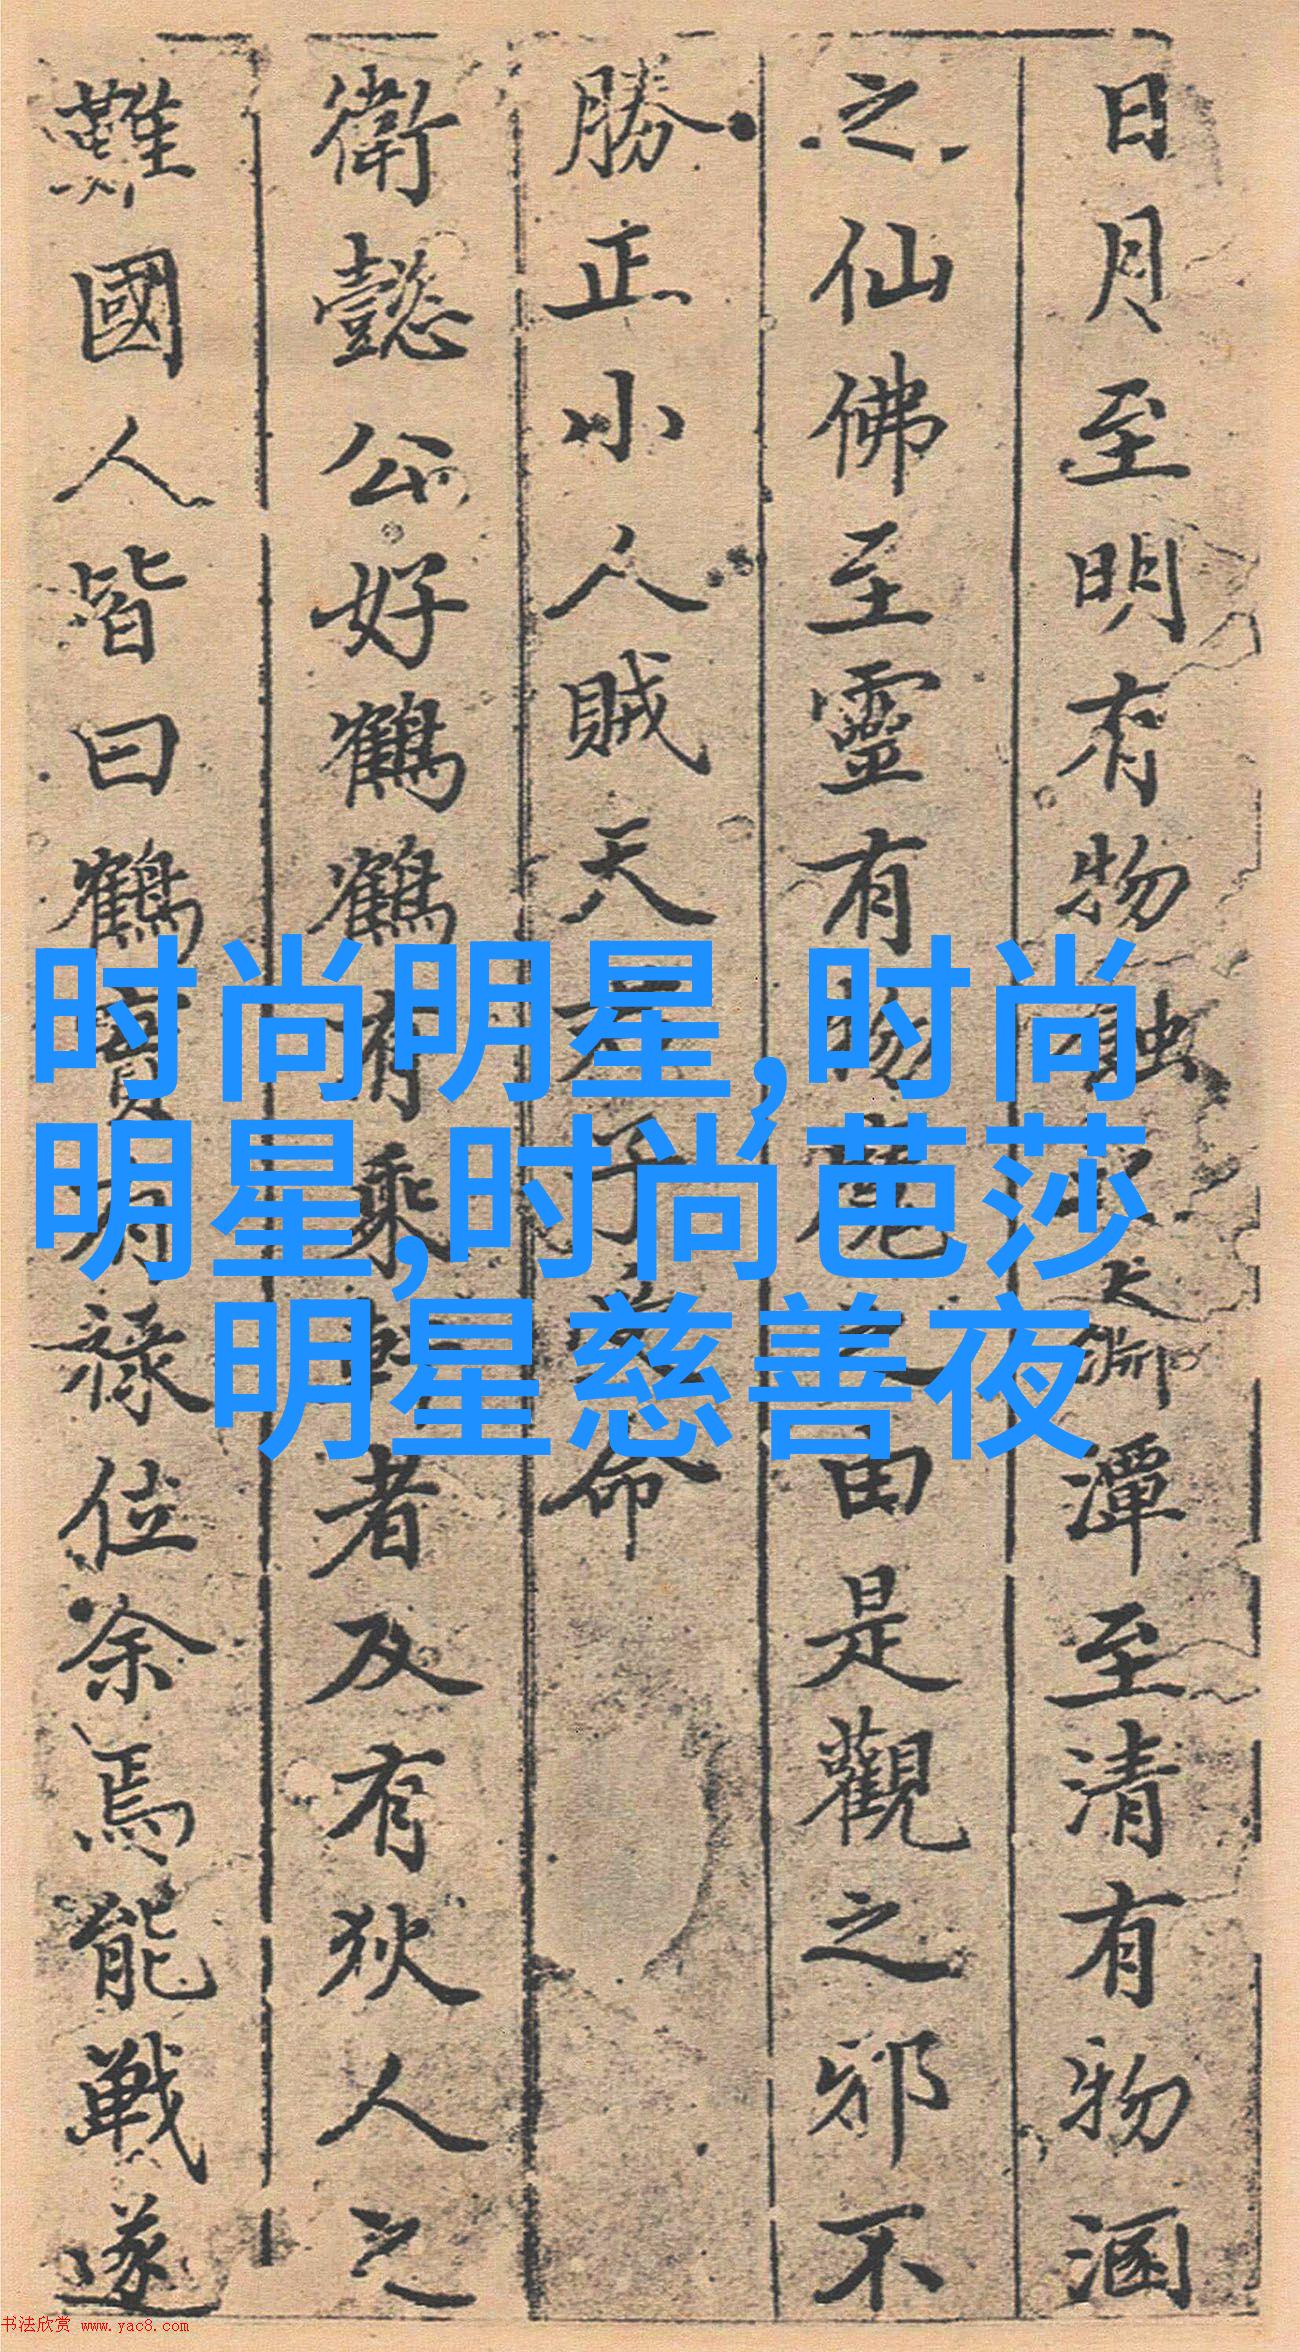 日月至明有物蝕大淵潭至清有物涵
之仙佛至靈有物由是觀之邪不
勝正小人賊天子命
衛懿公好鶴鶴有乘者及有狄人之
難國人皆曰鶴實有祿位余焉能戰遂
时尚明星,时尚
明星,时尚芭莎
明星慈善夜
书法欣赏 www.yac8.com